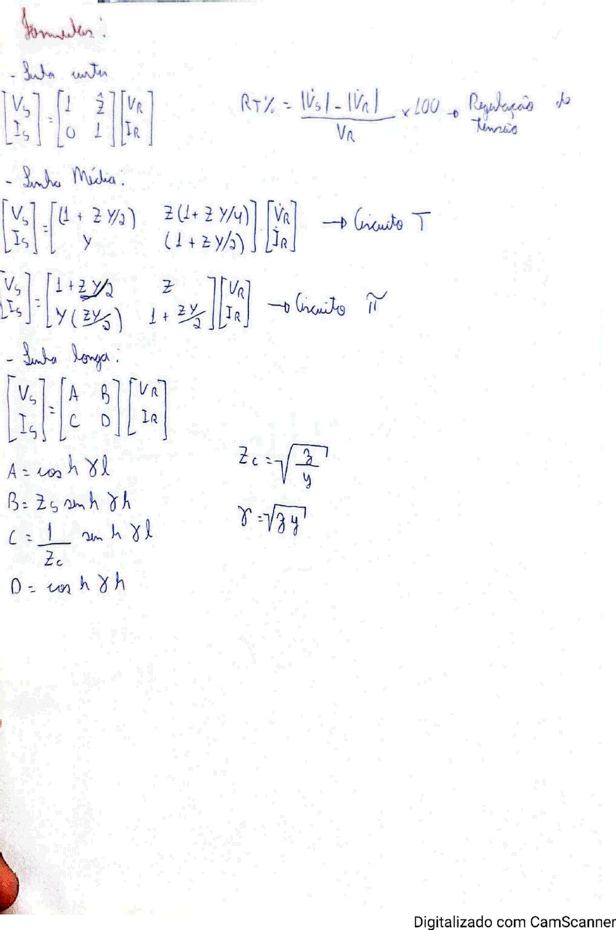 Formulas:
- Linha curta
[V_S; I_S] = [1 Ẑ; 0 1] [V_R; I_R]
RT% = |V̇_S| - |V̇_R| / V_R × 100 → Regulação de tensão
- Linha Média:
[V_S; I_S] = [(1 + ZY/2) Z(1 + ZY/4); Y (1 + ZY/2)] · [V̇_R; İ_R] → Circuito T
[V_S; I_S] = [1 + ZY/2 Z; Y(ZY/2) 1 + ZY/2] [V_R; I_R] → Circuito π
- Linha longa:
[V_S; I_S] = [A B; C D] [V_R; I_R]
A = cos h γ l
B = Z_S sen h γ h
C = 1/Z_c sen h γ l
D = cos h γ h
Z_c = √(z/y)
γ = √(zy)
Digitalizado com CamScanner